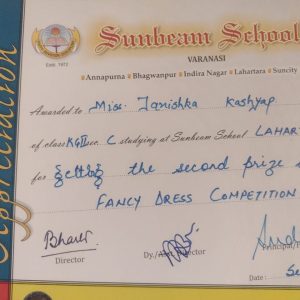 Sunbeam School
Estd. 1972
VARANASI
Annapurna Bhagwanpur Indira Nagar Lahartara Suncity
Awarded to Miss. Tanishka Kashyap
of class KG II sec. C studying at Sunbeam School LAHART
for getting the second prize
FANCY DRESS COMPETITION
Director
Dy./Asst. Director
Principal
Date :
Appreciation